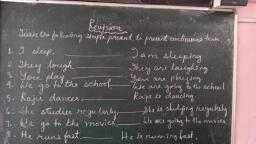 Revision
Change the following simple present to present continuous tense.
1. I sleep. I am sleeping
2. They laugh They are laughing
3. You play. You are playing.
4. We go to the school We are going to the school
5. Raju dances. Raju is dancing.
6. She studies regularly She is studying regularly
7. We go to the movies. We are going to the movies.
8. He runs fast. He is running fast.